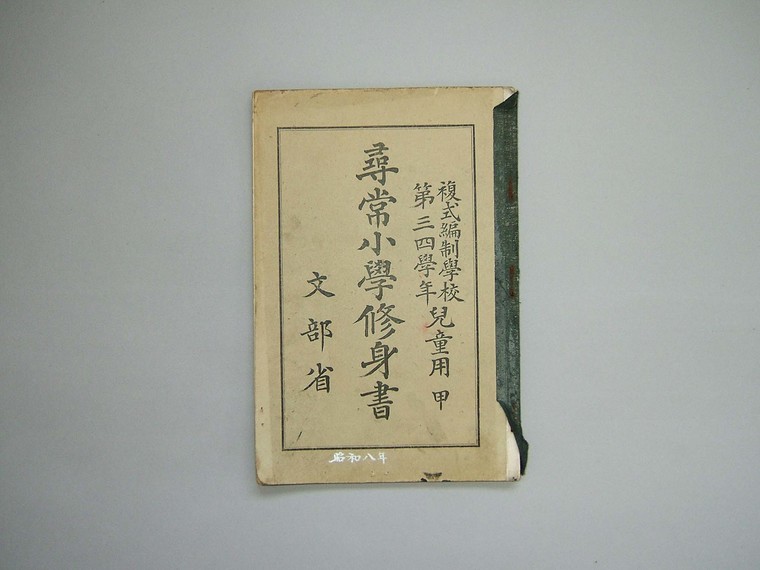 複式編制學校
第三四學年
兒童用 甲
尋常小學修身書
文部省
昭和八年